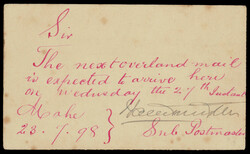 Sir
The next overland mail
is expected to arrive here
on Wednesday the 27th Instant
Mahe
23.7.98 } Sub Postmaster